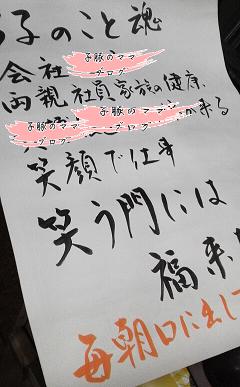 子のこと魂
会社
子豚のママ
ブログ
両親 社員 家族の健康、
子豚のママ
ブログ
子豚のママ
ブログ
が来る
笑顔で仕事
笑う門には
福来
毎朝口に出して